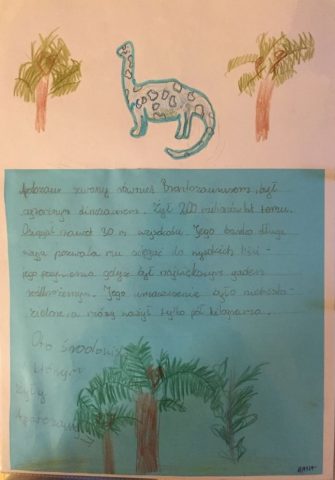 Apatozaur zwany również Brontozaurusem, był
ogromnym dinozaurem. Żył 200 milionów lat temu.
Osiągał nawet 30 m wysokości. Jego bardzo długa
szyja pozwala mu sięgać do wysokich liści -
jego pożywienia gdyż był gadem
roślinożernym. Jego umaszczenie było niebiesko-
zielone, a mózg ważył tylko pół kilograma.
Oto środowisko
którym
żyły
Apatozaury
HANIA